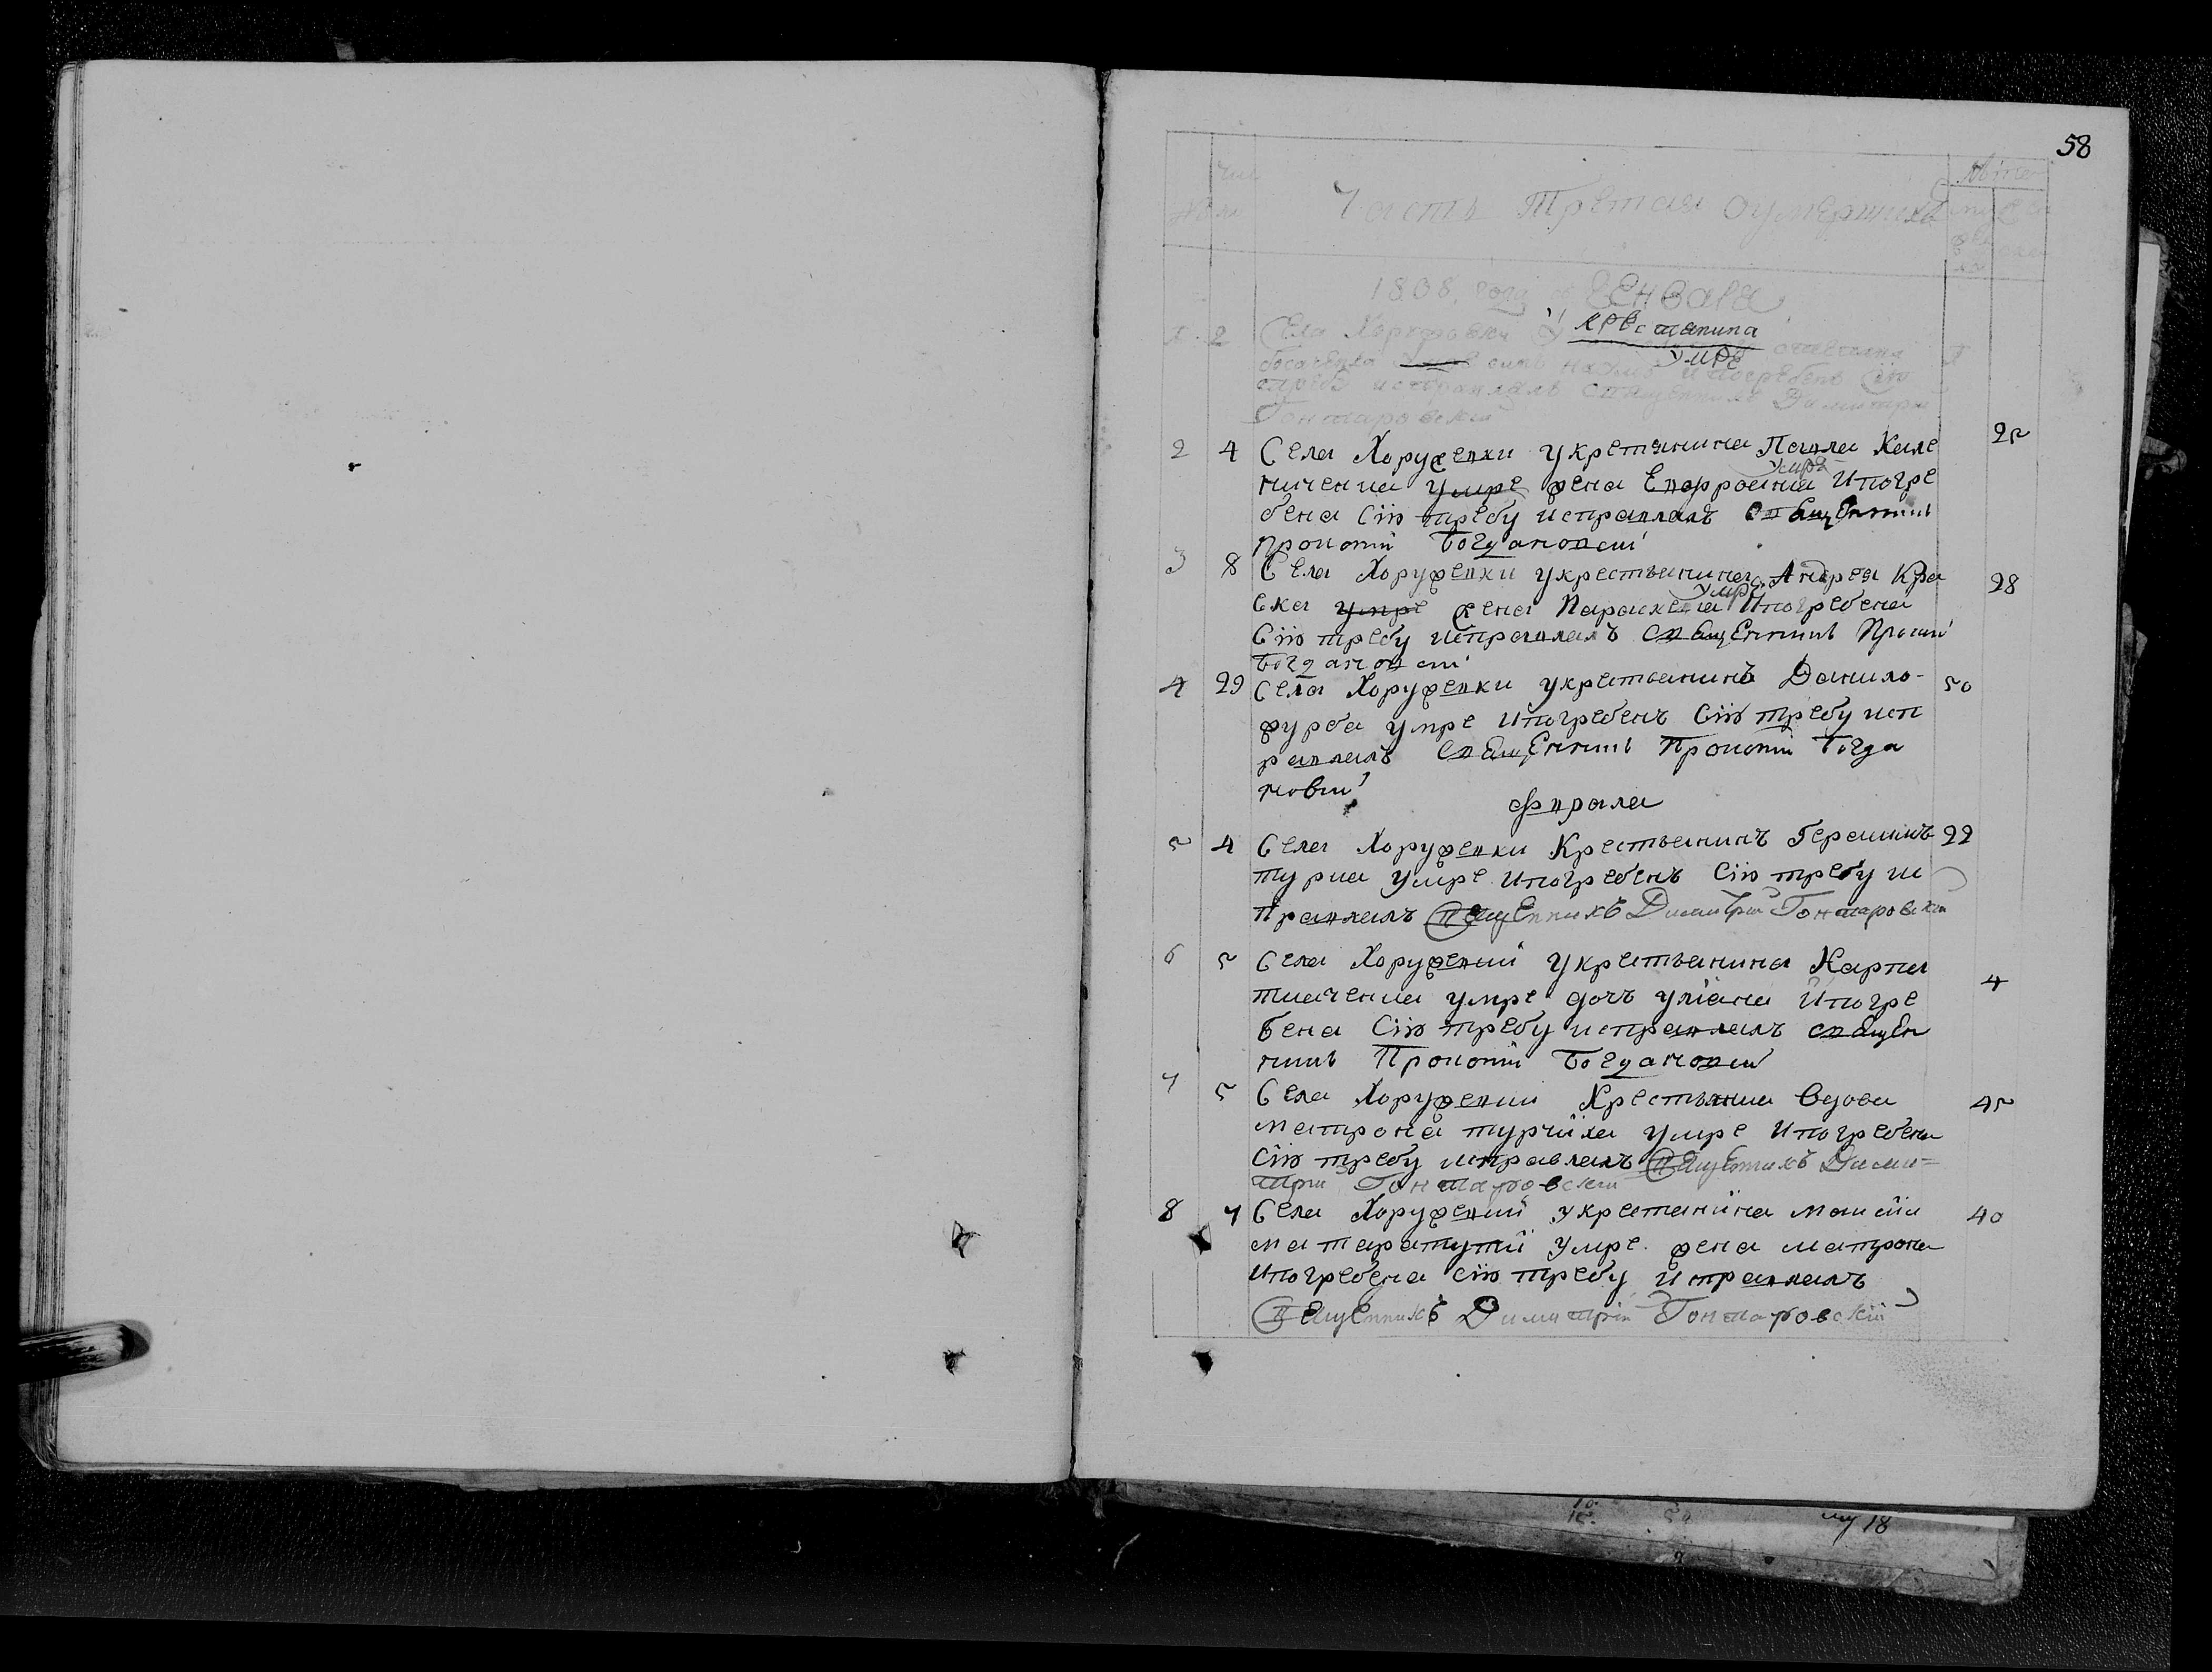 58
Часть Третая оумершихъ
1808, года Генваря
1. 2 Села Хоружовки У крестянина
умре и погребенъ Сію
требу исправлялъ священникъ Димитри
Гонтаровскій
2 4 Села Хоружевки у крестянина Павла Кале 25
ниченка умре жена Евфросиния умре Ипогре
бена Сію требу исправлялъ Священникъ
Прокопій Богдановскі
3 8 Села Хоружевки у крестьянина Андрея Кра 28
ска умре жена Параскевиа умре Ипогребена
Сію требу исправлялъ Священникъ Прокопій
Богдановскі
4 29 Села Хоружевки у крестьянинъ Данило 50
журба умре Ипогребенъ Сію требу исп
равлялъ Священникъ Прокопій Богда
новскі
Февраля
5 4 Села Хоружевки Крестьянинъ Герасимъ 22
турка умре Ипогребенъ Сію требу ис
правлялъ Священникъ Димитрій Гонтаровскій
6 5 Села Хоружевкии у крестьянина Карпа 4
ткаченка умре дочъ уліана Ипогре
бена Сію требу исправлялъ священ
никъ Прокопій Богдановскі
7 5 Села Хоружевки Крестьянка вдова 45
матрона турчиха умре Ипогребена
Сію требу исправлялъ Священникъ Дими=
трій Гонтаровскій
8 7 Села Хоружевкій у крестянина 40
таратутті умре жена матрона
Ипогребена сію требу исправлялъ
Священникъ Димитрій Гонтаровскій
му 18